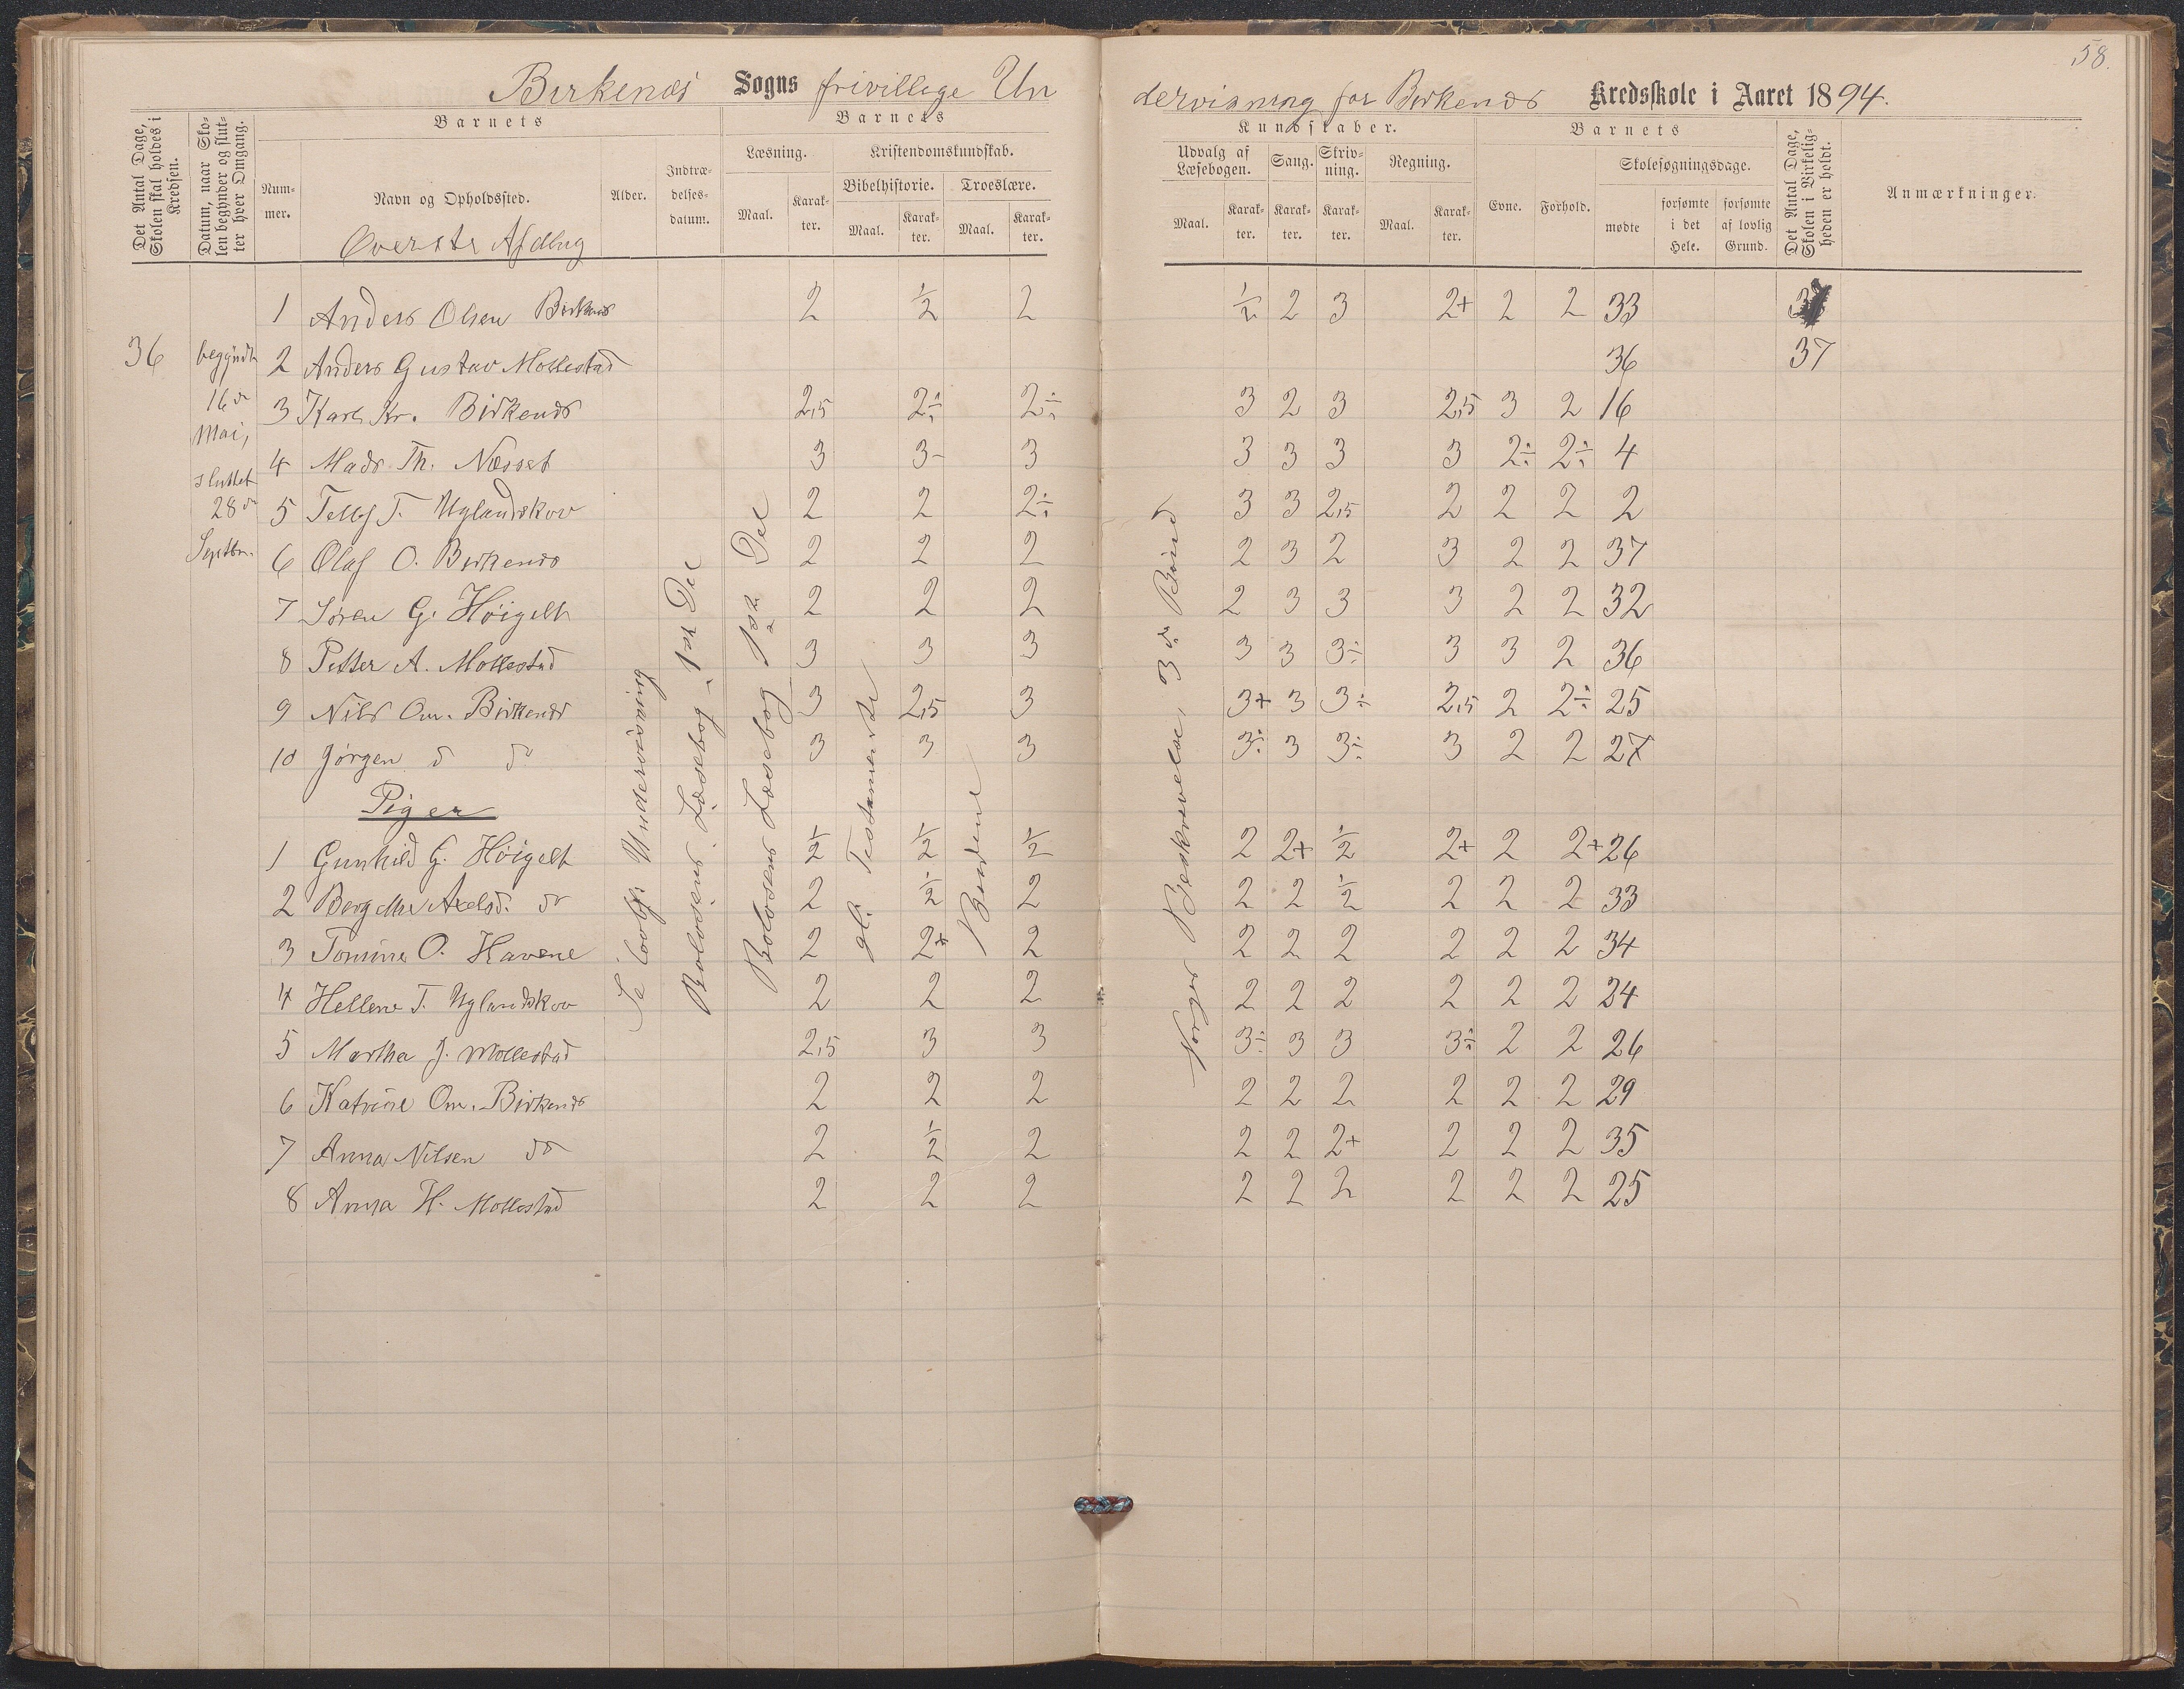 58.
Birkenæs Sogns frivillige Un
dervisning for Birkenæs Kredsskole i Aaret 1894.
Det Antal Dage, Skolen skal holdes i Kredsen.
Datum, naar Skolen begynder og slutter hver Omgang.
Barnets
Nummer.
Navn og Opholdssted.
Øverste Afdlng
Alder.
Indtrædelses-datum.
Barnets
Læsning.
Maal.
Karakter.
Kristendomskundskab.
Bibelhistorie.
Maal.
Karakter.
Troeslære.
Maal.
Karakter.
Kundskaber.
Udvalg af Læsebogen.
Maal.
Karakter.
Sang.
Karakter.
Skrivning.
Karakter.
Regning.
Maal.
Karakter.
Barnets
Evne.
Forhold.
Skolesøgningsdage.
mødte
forsømte i det Hele.
forsømte af lovlig Grund.
Det Antal Dage, Skolen i Virkeligheden er holdt.
Anmærkninger.
36
begyndt
16de
Mai,
sluttet
28de
Septbr.
1 Anders Olsen Birkenæs 2 1/2 2 1/2 2 3 2+ 2 2 33
2 Anders Gustav Mollestad 36 37
3 Karl Kr. Birkenæs 2,5 2÷ 2÷ 3 2 3 2,5 3 2 16
4 Mads Th. Næsset 3 3- 3 3 3 3 3 2÷ 2÷ 4
5 Tellef T. Uglandskov 2 2 2÷ 3 3 2,5 2 2 2 2
6 Olaf O. Birkenæs 2 2 2 2 3 2 3 2 2 37
7 Søren G. Höigelt 2 2 2 2 3 3 3 2 2 32
8 Petter A. Mollestad 3 3 3 3 3 3÷ 3 3 2 36
9 Nils Om. Birkenæs 3 2,5 3 3+ 3 3÷ 2,5 2 2÷ 25
10 Jörgen do do 3 3 3 3÷ 3 3÷ 3 2 2 27
Piger
1 Gunhild G. Höigelt 1/2 1/2 1/2 2 2+ 1/2 2+ 2 2+ 26
2 Berg Axelsd. do 2 1/2 2 2 2 1/2 2 2 2 33
3 Tomine O. Havene 2 2+ 2 2 2 2 2 2 2 34
4 Hellene T. Uglandskov 2 2 2 2 2 2 2 2 2 24
5 Martha J. Mollestad 2,5 3 3 3÷ 3 3 3÷ 2 2 26
6 Katrine Om. Birkenæs 2 2 2 2 2 2 2 2 2 29
7 Anna Nilsen do 2 1/2 2 2 2 2+ 2 2 2 35
8 Anna H. Mollestad 2 2 2 2 2 2 2 2 2 25
Se lovbf. Undervisning
Rolvsens Læsebog, 1ste Del
Rolvsens Læsebog 1ste Del
gl. Testamente
Bönnen
Norges Beskrivelse, 3de Bind